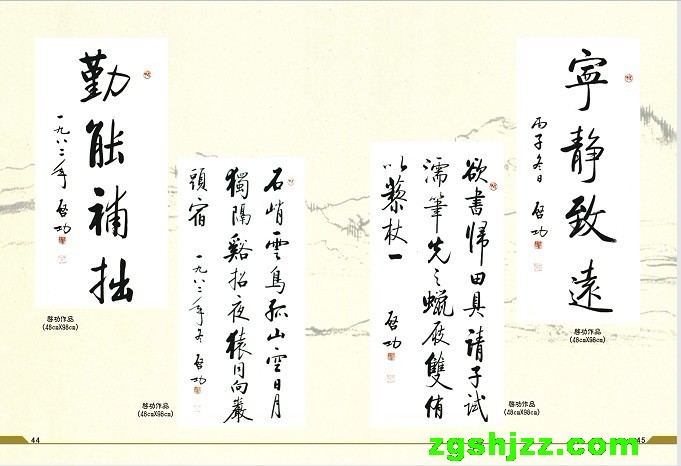 勤能補拙
一九八二年 啓功
啓功作品
(48cmX98cm)
石峭雲鳥孤山空日月
獨隔谿招夜猿同向巖
頭宿 一九八二年冬 啓功
啓功作品
(48cmX98cm)
欲書歸田具請子試
濡筆先之蠟屐雙侑
以藜杖一
啓功
啓功作品
(48cmX98cm)
寧靜致遠
丙子冬日 啓功
啓功作品
(48cmX98cm)
44
45
zgshjzz.com